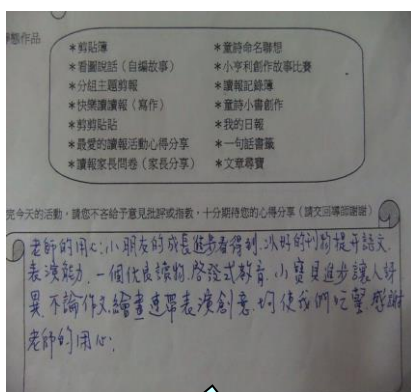 靜態作品
*剪貼簿
*看圖說話（自編故事）
*分組主題剪報
*快樂讀讀報（寫作）
*剪剪貼貼
*最愛的讀報活動心得分享
*讀報家長問卷（家長分享）
*童詩命名聯想
*小亨利創作故事比賽
*讀報記錄簿
*童詩小書創作
*我的日報
*一句話書籤
*文章尋寶
完今天的活動，請您不吝給予意見批評或指教，十分期待您的心得分享（請交回導師謝謝）
老師的用心:小朋友的成長進步看得到.以好的刊物提升語文.
表演能力.一個優良讀物.啓發式教育.小寶貝進步讓人訝
異.不論作文.繪畫連帶表演創意.均使我們吃驚.感謝
老師的用心.